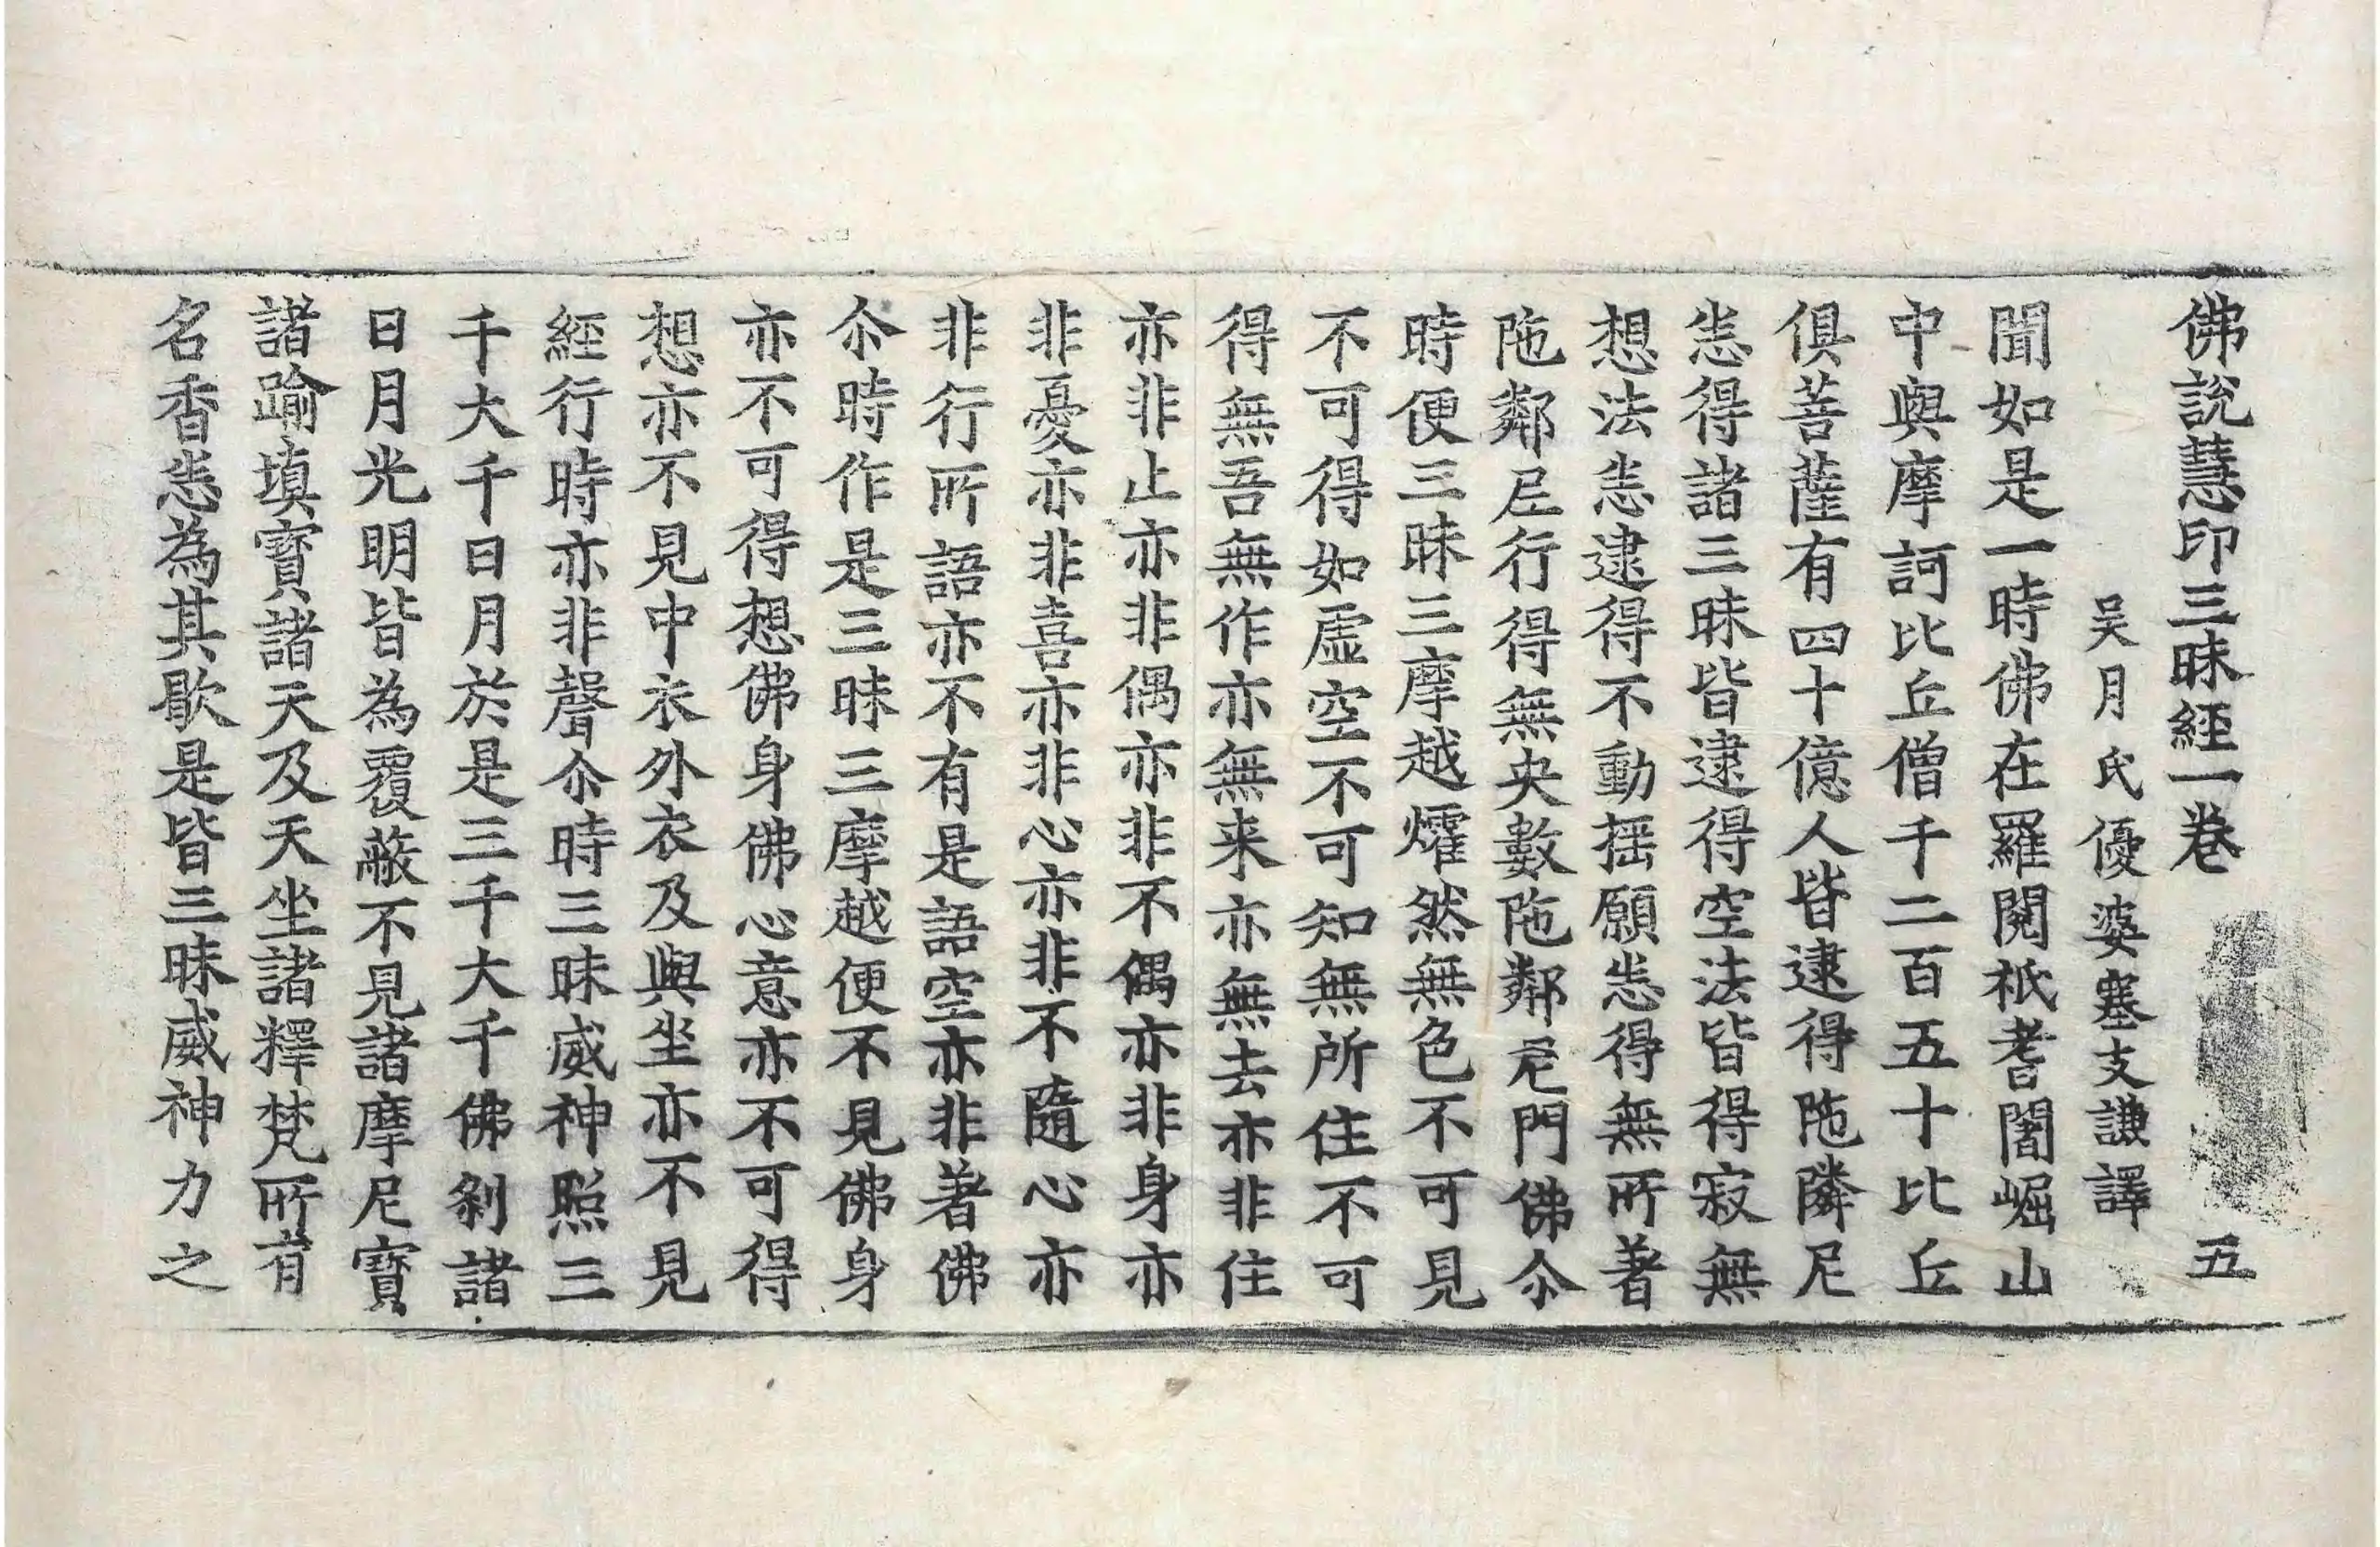 佛說慧印三昧經一卷 五
吴月氏優婆塞支謙譯
聞如是一時佛在羅閱祇耆闍崛山
中與摩訶比丘僧千二百五十比丘
俱菩薩有四十億人皆逮得陁隣尼
恙得諸三昧皆逮得空法皆得寂無
想法恙逮得不動揺願恙得無所著
陁鄰尼行得無央數陁鄰尼門佛尒
時便三昧三摩越燿然無色不可見
不可得如虛空不可知無所住不可
得無吾無作亦無来亦無去亦非住
亦非止亦非偶亦非不偶亦非身亦
非憂亦非喜亦非心亦非不隨心亦
非行所語亦不有是語空亦非著佛
尒時作是三昧三摩越便不見佛身
亦不可得想佛身佛心意亦不可得
想亦不見中衣外衣及與坐亦不見
經行時亦非聲尒時三昧威神照三
千大千日月於是三千大千佛剎諸
日月光明皆為覆蔽不見諸摩尼寶
諸踰填寶諸天及天坐諸釋梵所有
名香恙為其歇是皆三昧威神力之